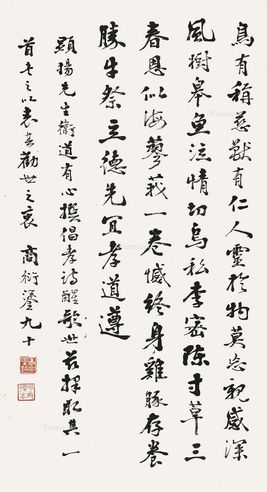 鳥有稱慈獸有仁人靈於物莫忘親感深
風樹皋魚泣情切烏私李密陳寸草三
春恩似海蓼莪一卷憾終身雞豚存養
勝牛祭立德先宜孝道遵
顯揚先生衛道有心撰倡孝詩醒世茲擇取其一
首書之以表勸世之衷 商衍鎏九十